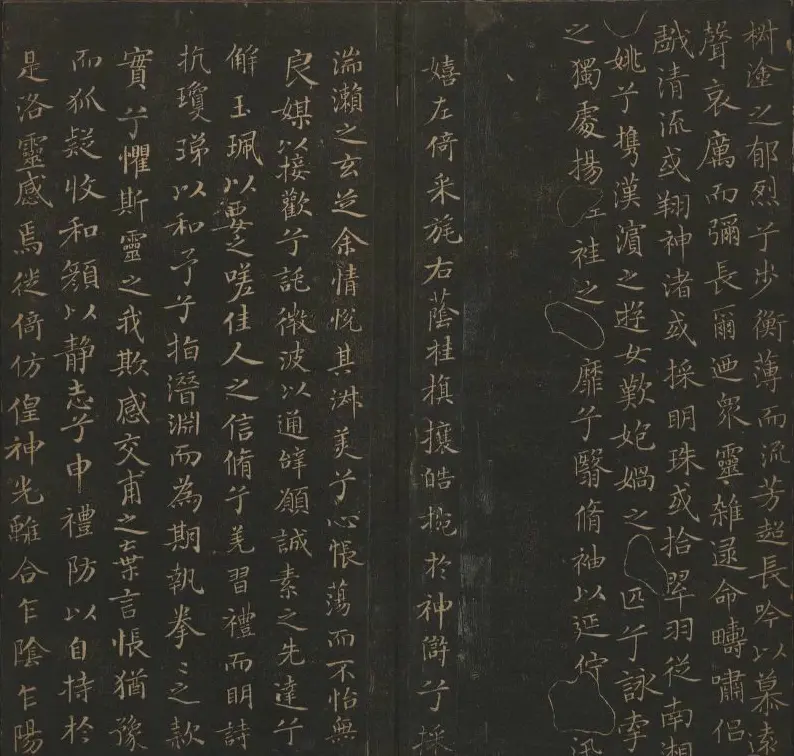 椒塗之郁烈兮步衡薄而流芳超長吟以慕遠
聲哀厲而彌長爾迺衆靈雜遝命疇嘯侶
戲清流或翔神渚或採明珠或拾翠羽從南湘
姚兮攜漢濱之遊女歎匏媧之匹兮詠牽
之獨處揚袿之靡兮翳脩袖以延佇
嬉左倚采旄右蔭桂旗攘皓捥於神滸兮採
湍瀨之玄芝余情悅其淑美兮心悵蕩而不怡無
良媒以接歡兮託微波以通辭願誠素之先達兮
解玉珮以要之嗟佳人之信脩兮羌習禮而明詩
抗瓊珶以和予兮指潛淵而為期執拳〻之款
實兮懼斯靈之我欺感交甫之棄言悵猶豫
而狐疑收和顏以靜志兮申禮防以自持於
是洛靈感焉徙倚仿偟神光離合乍陰乍陽